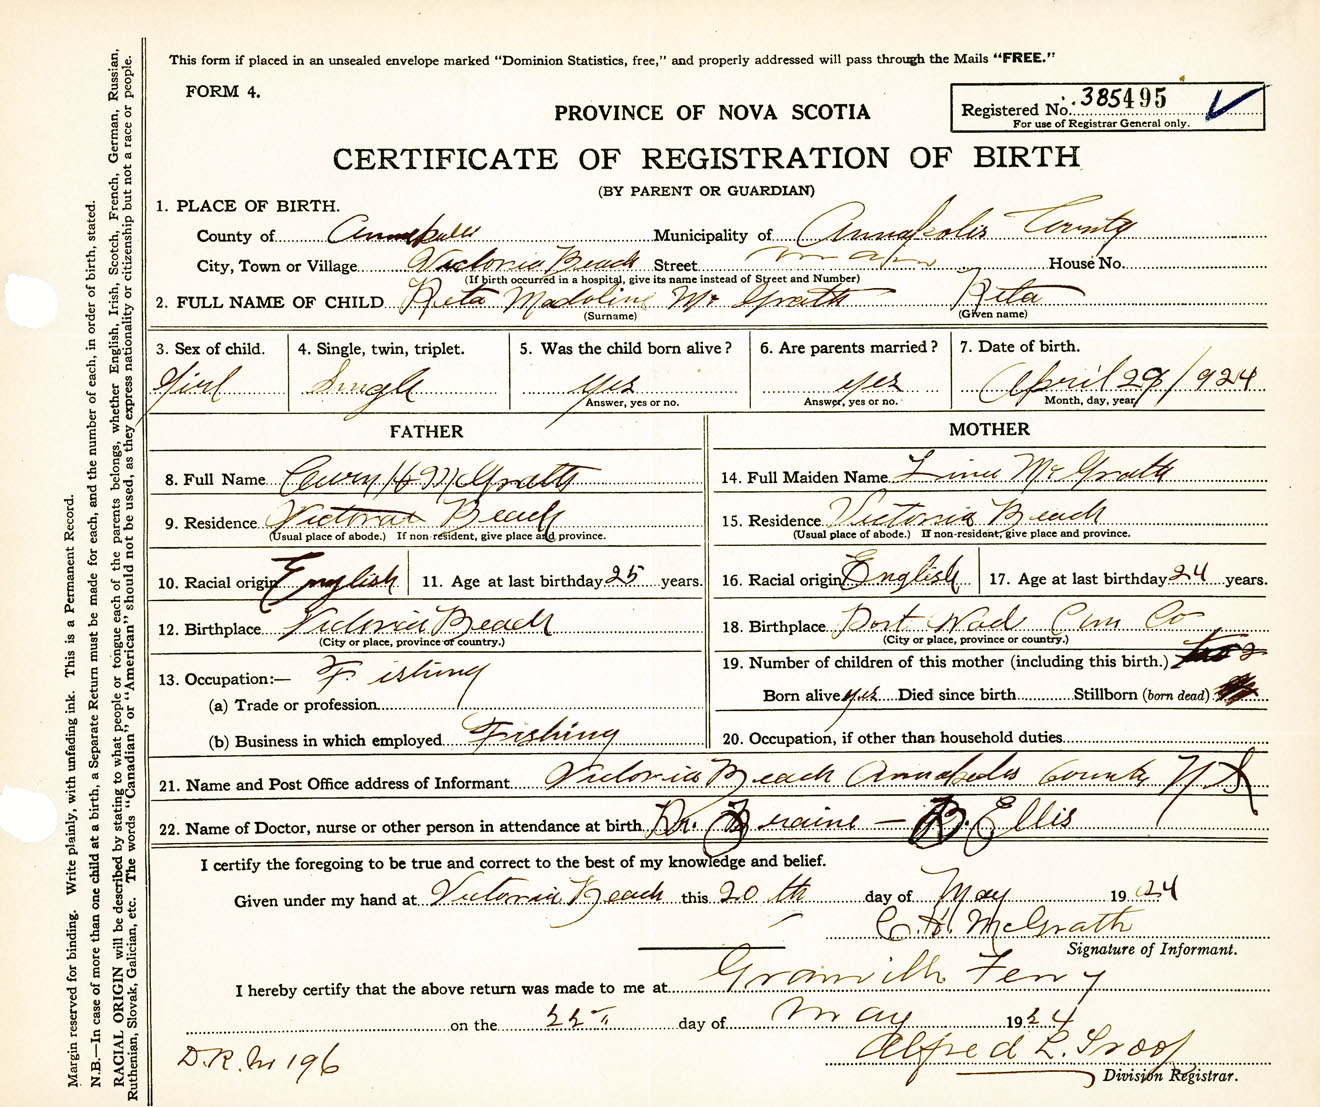 This form if placed in an unsealed envelope marked "Dominion Statistics, free," and properly addressed will pass through the Mails "FREE."
FORM 4.
PROVINCE OF NOVA SCOTIA
Registered No. 385495
For use of Registrar General only.
CERTIFICATE OF REGISTRATION OF BIRTH
(BY PARENT OR GUARDIAN)
1. PLACE OF BIRTH.
County of Annapolis Municipality of Annapolis County
City, Town or Village Victoria Beach Street Main House No.
(If birth occurred in a hospital, give its name instead of Street and Number)
2. FULL NAME OF CHILD Reta Madoline McGrath Reta
(Surname) (Given name)
3. Sex of child. 4. Single, twin, triplet. 5. Was the child born alive? 6. Are parents married? 7. Date of birth.
Girl Single Yes yes April 28/1924
Answer, yes or no. Answer, yes or no. Month, day, year
FATHER MOTHER
8. Full Name H McGrath 14. Full Maiden Name McGrath
9. Residence Victoria Beach 15. Residence Victoria Beach
(Usual place of abode.) If non-resident, give place and province. (Usual place of abode.) If non-resident, give place and province.
10. Racial origin English 11. Age at last birthday 25 years. 16. Racial origin English 17. Age at last birthday 24 years.
12. Birthplace Victoria Beach 18. Birthplace Port Wad Co
(City or place, province or country.) (City or place, province or country.)
13. Occupation:— Fishing 19. Number of children of this mother (including this birth.) 2
(a) Trade or profession Born alive yes Died since birth Stillborn (born dead)
(b) Business in which employed Fishing 20. Occupation, if other than household duties
21. Name and Post Office address of Informant Victoria Beach Annapolis County N S
22. Name of Doctor, nurse or other person in attendance at birth Dr. Braine — B. Ellis
I certify the foregoing to be true and correct to the best of my knowledge and belief.
Given under my hand at Victoria Beach this 20 th day of May 1924
C. H. McGrath
Signature of Informant.
I hereby certify that the above return was made to me at Granville Ferry
on the 22 day of May 1924
Alfred L. Troop
Division Registrar.
D.R. No 196
Margin reserved for binding. Write plainly, with unfading ink. This is a Permanent Record.
N.B.—In case of more than one child at a birth, a Separate Return must be made for each, and the number of each, in order of birth, stated.
RACIAL ORIGIN will be described by stating to what people or tongue each of the parents belongs, whether English, Irish, Scotch, French, German, Russian,
Ruthenian, Slovak, Galician, etc. The words "Canadian" or "American" should not be used, as they express nationality or citizenship but not a race or people.